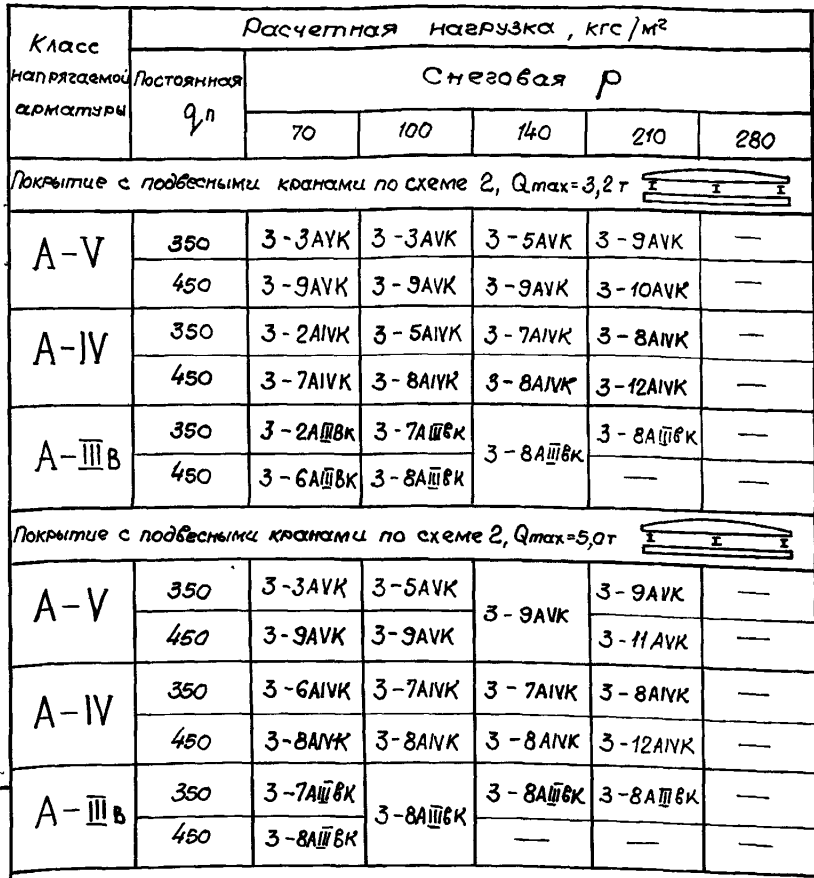 Класс напрягаемой арматуры
Расчетная нагрузка, кгс/м²
Постоянная qп
Снеговая р
70 100 140 210 280
Покрытие с подвесными кранами по схеме 2, Qmax=3,2т
А-V 350 3-3АVК 3-3АVК 3-5АVК 3-9АVК —
450 3-9АVК 3-9АVК 3-9АVК 3-10АVК —
А-IV 350 3-2АIVК 3-5АIVК 3-7АIVК 3-8АIVК —
450 3-7АIVК 3-8АIVК 3-8АIVК 3-12АIVК —
А-IIIв 350 3-2АIIIвК 3-7АIIIвК 3-8АIIIвК 3-8АIIIвК —
450 3-6АIIIвК 3-8АIIIвК — —
Покрытие с подвесными кранами по схеме 2, Qmax=5,0т
А-V 350 3-3АVК 3-5АVК 3-9АVК 3-9АVК —
450 3-9АVК 3-9АVК 3-11АVК —
А-IV 350 3-6АIVК 3-7АIVК 3-7АIVК 3-8АIVК —
450 3-8АIVК 3-8АIVК 3-8АIVК 3-12АIVК —
А-IIIв 350 3-7АIIIвК 3-8АIIIвК 3-8АIIIвК 3-8АIIIвК —
450 3-8АIIIвК — — —